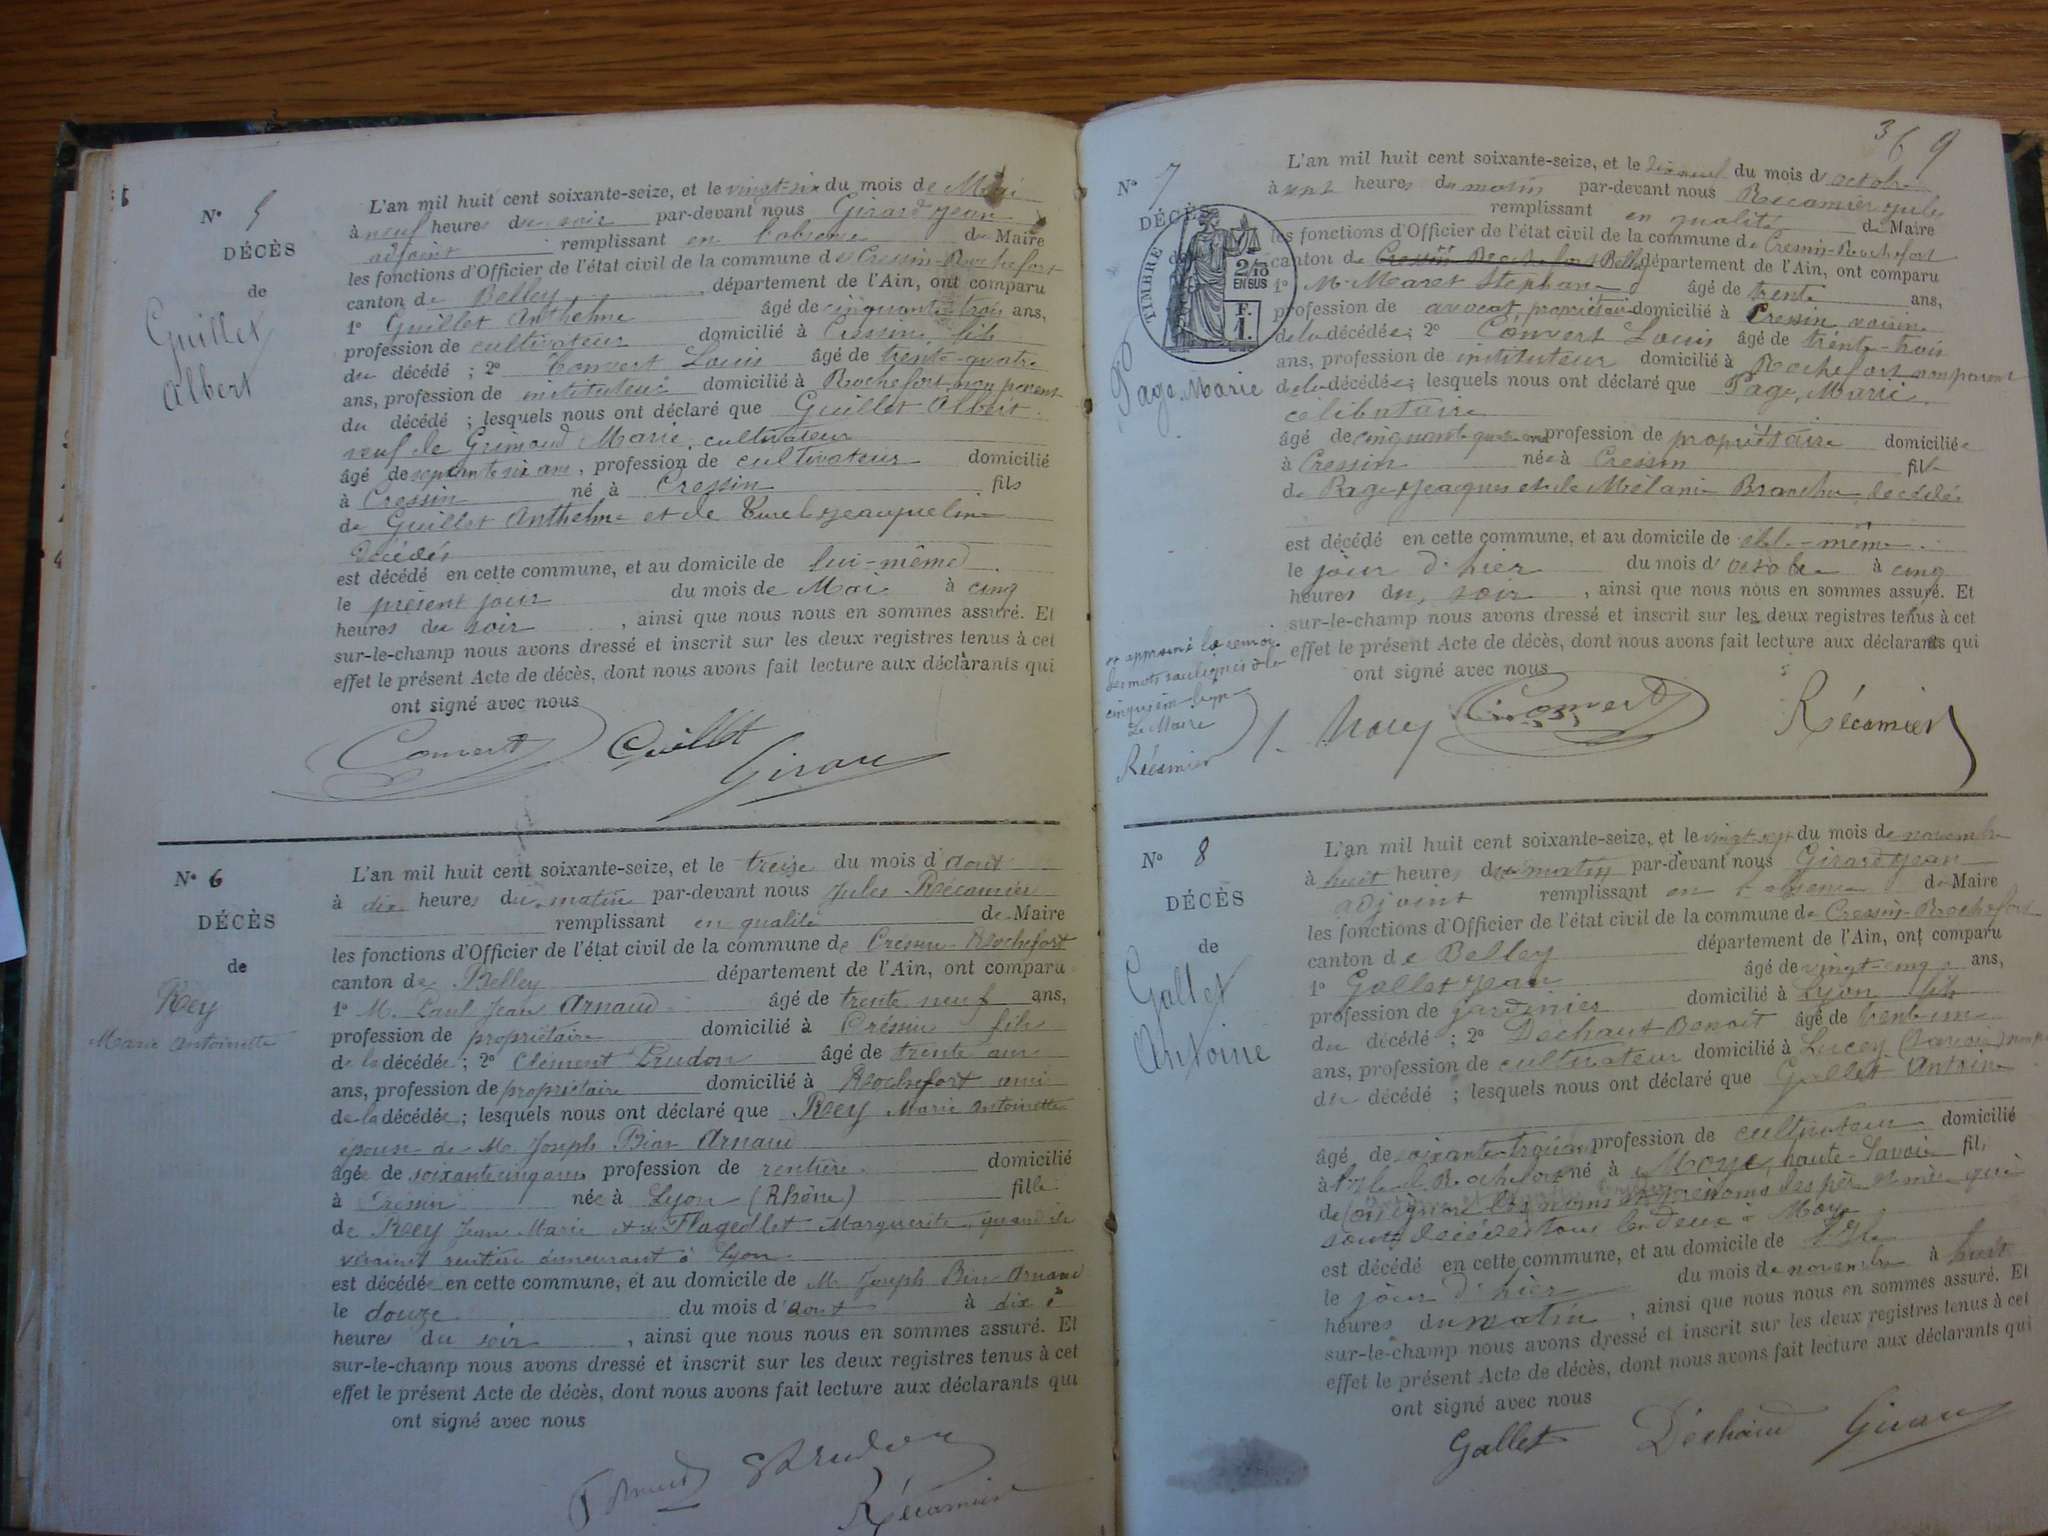 N° 5
DÉCÈS
de
Guillet
Albert
L'an mil huit cent soixante-seize, et le vingt-six du mois de Mai
à neuf heures du soir par-devant nous Girard Jean
adjoint remplissant en l'absence de Maire
les fonctions d'Officier de l'état civil de la commune de Cressin-Rochefort
canton de Belley département de l'Ain, ont comparu
1° Guillet Anthelme âgé de cinquante-trois ans,
profession de cultivateur domicilié à Cressin fils
du décédé ; 2° Convert Louis âgé de trente-quatre
ans, profession de instituteur domicilié à Rochefort, non parent
du décédé ; lesquels nous ont déclaré que Guillet Albert
veuf de Grimond Marie, cultivateur
âgé de septante six ans, profession de cultivateur domicilié
à Cressin né à Cressin fils
de Guillet Anthelme et de Jeanqueline
décédés
est décédé en cette commune, et au domicile de lui-même
le présent jour du mois de Mai à cinq
heures du soir, ainsi que nous nous en sommes assuré. Et
sur-le-champ nous avons dressé et inscrit sur les deux registres tenus à cet
effet le présent Acte de décès, dont nous avons fait lecture aux déclarants qui
ont signé avec nous
Convert Guillet
Girard
N° 6
DÉCÈS
de
Rey
Marie Antoinette
L'an mil huit cent soixante-seize, et le treize du mois d'aout
à dix heures du matin par-devant nous Jules Récamier
remplissant en qualité de Maire
les fonctions d'Officier de l'état civil de la commune de Cressin-Rochefort
canton de Belley département de l'Ain, ont comparu
1° M. Paul Jean Arnaud âgé de trente neuf ans,
profession de propriétaire domicilié à Cressin fils
de la décédée ; 2° Clément Prudon âgé de trente ans
ans, profession de propriétaire domicilié à Rochefort ami
de la décédée ; lesquels nous ont déclaré que Rey Marie Antoinette
épouse de M. Joseph Arnaud
âgée de soixante cinq ans profession de rentière domicilié
à Cressin née à Lyon (Rhône) fille
de Rey Jean Marie et de Flageollet Marguerite, quand ils
vivaient rentiers demeurant à Lyon.
est décédée en cette commune, et au domicile de M. Joseph Arnaud
le douze du mois d'aout à dix
heures du soir, ainsi que nous nous en sommes assuré. Et
sur-le-champ nous avons dressé et inscrit sur les deux registres tenus à cet
effet le présent Acte de décès, dont nous avons fait lecture aux déclarants qui
ont signé avec nous
Prudon
Récamier
369
N° 7
DÉCÈS
TIMBRE
2/10
EN SUS
F.
1.
Page Marie
L'an mil huit cent soixante-seize, et le dix neuf du mois d'octobre
à onze heures du matin par-devant nous Récamier Jules
remplissant en qualité de Maire
les fonctions d'Officier de l'état civil de la commune de Cressin-Rochefort
canton de Cressin Rochefort Belley département de l'Ain, ont comparu
1° M. Stephane âgé de trente ans,
profession de avocat, propriétaire domicilié à Cressin voisin
de la décédée ; 2° Convert Louis âgé de trente-trois
ans, profession de instituteur domicilié à Rochefort non parent
de la décédée ; lesquels nous ont déclaré que Page, Marie
célibataire
âgé de cinquante profession de propriétaire domiciliée
à Cressin née à Cressin fille
de Page Jacques et de Mélanie décédés
est décédé en cette commune, et au domicile de elle-même
le jour d'hier du mois d'octobre à cinq
heures du soir, ainsi que nous nous en sommes assuré. Et
sur-le-champ nous avons dressé et inscrit sur les deux registres tenus à cet
effet le présent Acte de décès, dont nous avons fait lecture aux déclarants qui
ont signé avec nous
approuvé le renvoi
des mots soulignés à la
cinquième ligne
Le Maire
Récamier
Convert Récamier
N° 8
DÉCÈS
de
Gallet
Antoine
L'an mil huit cent soixante-seize, et le vingt-sept du mois de novembre
à huit heures du matin par-devant nous Girard Jean
adjoint remplissant en l'absence de Maire
les fonctions d'Officier de l'état civil de la commune de Cressin-Rochefort
canton de Belley département de l'Ain, ont comparu
1° Gallet Jean âgé de vingt-cinq ans,
profession de jardinier domicilié à Lyon fils
du décédé ; 2° Déchaut Benoit âgé de trente un
ans, profession de cultivateur domicilié à Lucey (Savoie)
du décédé ; lesquels nous ont déclaré que Gallet Antoine
âgé de soixante-trois ans profession de cultivateur domicilié
à de Rochefort né à Moye, haute-Savoie fils
de (on ignore les noms et prénoms des père et mère qui
sont décédés tous les deux à Moye
est décédé en cette commune, et au domicile de
le jour d'hier du mois de novembre à huit
heures du matin, ainsi que nous nous en sommes assuré. Et
sur-le-champ nous avons dressé et inscrit sur les deux registres tenus à cet
effet le présent Acte de décès, dont nous avons fait lecture aux déclarants qui
ont signé avec nous
Gallet Déchaud Girard